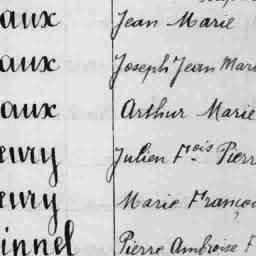 aux Jean Marie
aux Joseph Jean Mari
aux Arthur Marie
eury Julien Fois Pierr
eury Marie Françoi
innel Pierre Ambroise F